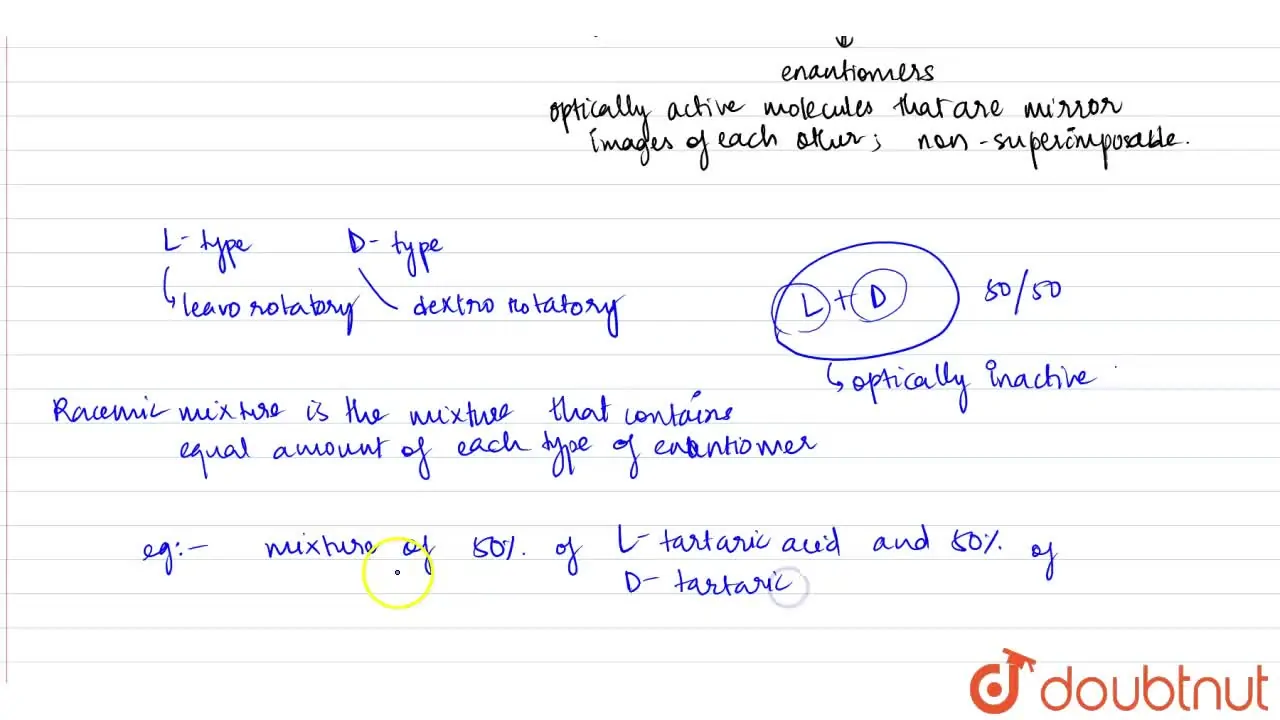 enantiomers
optically active molecules that are mirror
images of each other; non-superimposable.
L- type D- type
leavo rotatory dextro rotatory
L + D 50/50
optically inactive
Racemic mixture is the mixture that contains
equal amount of each type of enantiomer
eg:- mixture of 50% of L- tartaric acid and 50% of
D- tartaric
doubtnut